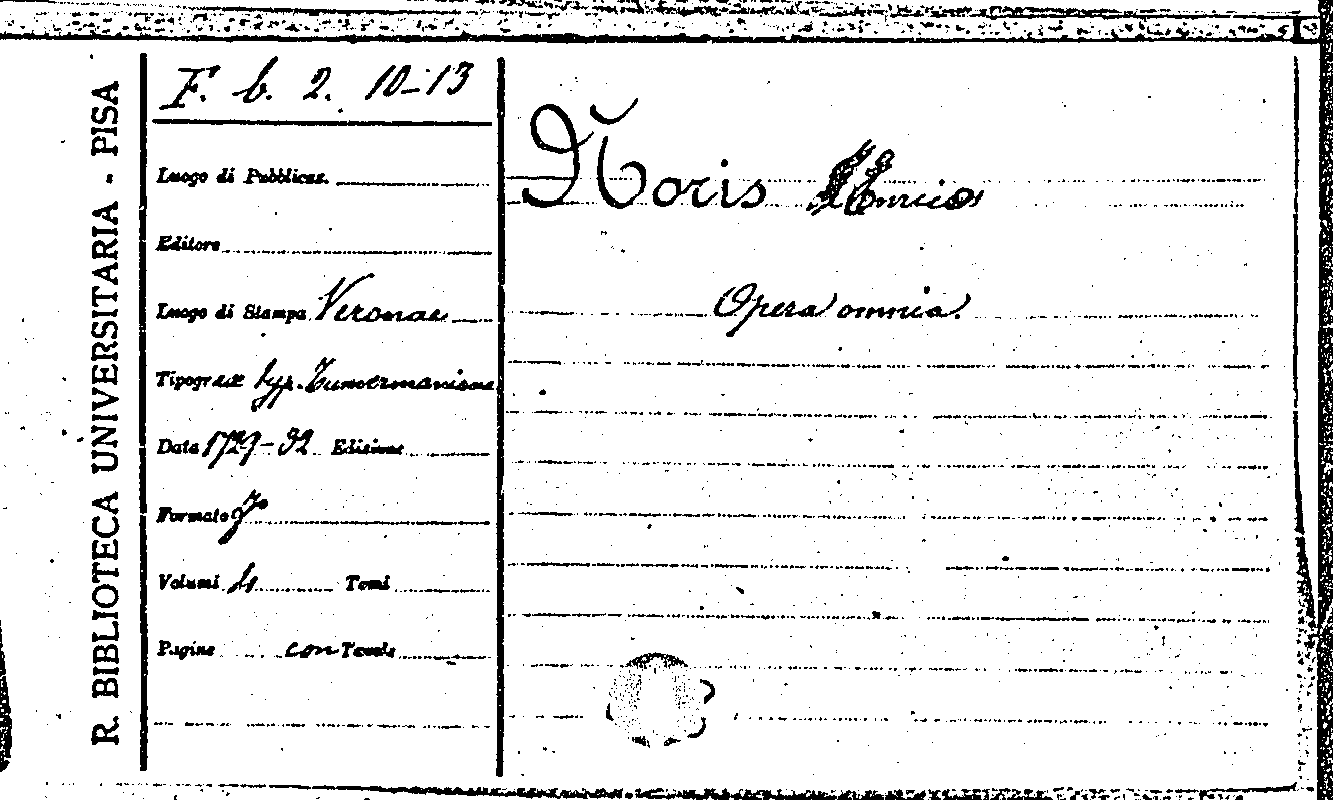 R. BIBLIOTECA UNIVERSITARIA - PISA
F. b. 2. 10-13
Luogo di Pubblicaz.
Editore
Luogo di Stampa Veronae
Tipogr. ex typ. Tumermaniana
Data 1729-32 Edizione
Formato fo
Volumi 4 Tomi
Pagine con Tavole
Noris Enrico
Opera omnia.